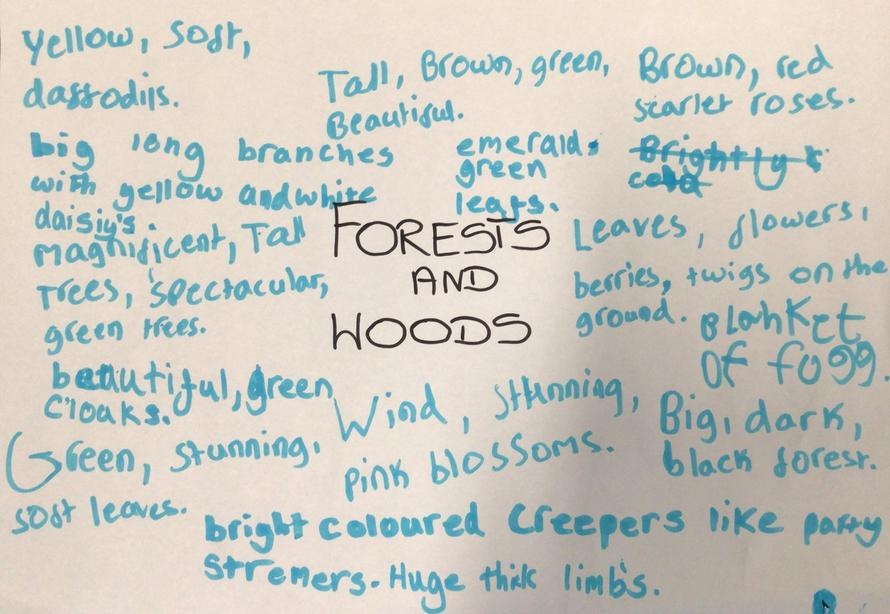 Yellow, soft,
daffodils.
Tall, Brown, green,
Beautiful.
Brown, red
scarlet roses.
big long branches
with yellow and white
daisiy's.
emerald
green
leafs.
Brightly
magnificent, Tall
Trees, spectacular,
green trees.
FORESTS
AND
WOODS
Leaves, flowers,
berries, twigs on the
ground.
Blanket
of fogg.
beautiful, green
cloaks.
Wind, stunning,
pink blossoms.
Big, dark,
black forest.
Green, stunning,
soft leaves.
bright coloured creepers like party
stremers. Huge thick limb's.